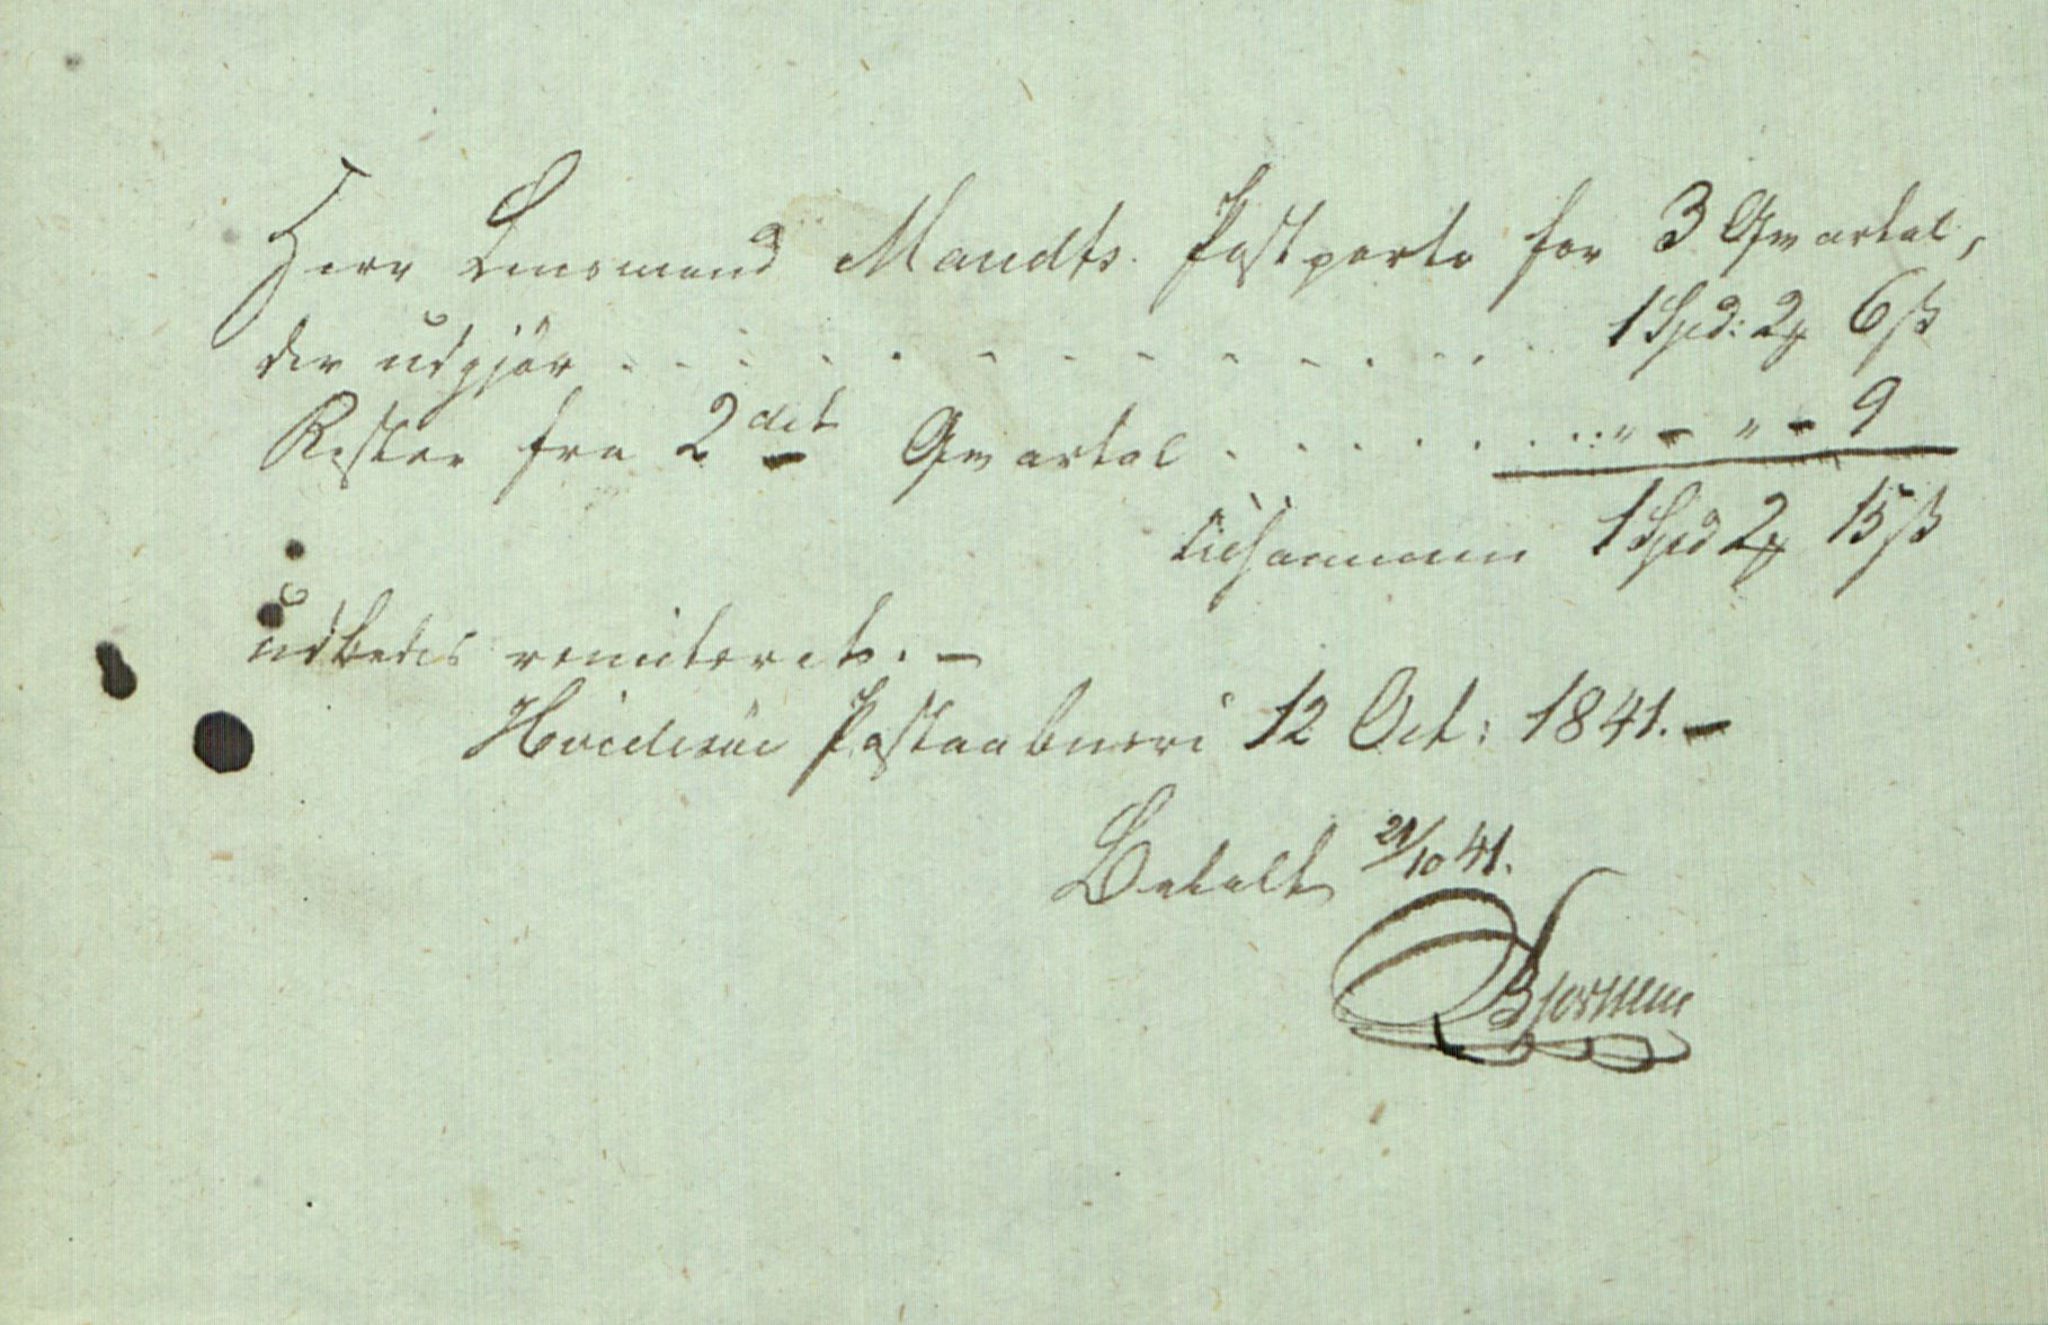 Herr Lensmand Mandts Postporto for 3 Qvartal,
der udgjør . . . . . . . . . . . . . 1 Spd: 2 # 6 ß
Rester fra 2det Qvartal . . . . . . . . „ - „ - 9
tilsammen 1 Spd 2 # 15 ß
udbedes remiteret. -
Hvidesøe Postaabneri 12 Oct: 1841. -
Betalt 21/10 41.